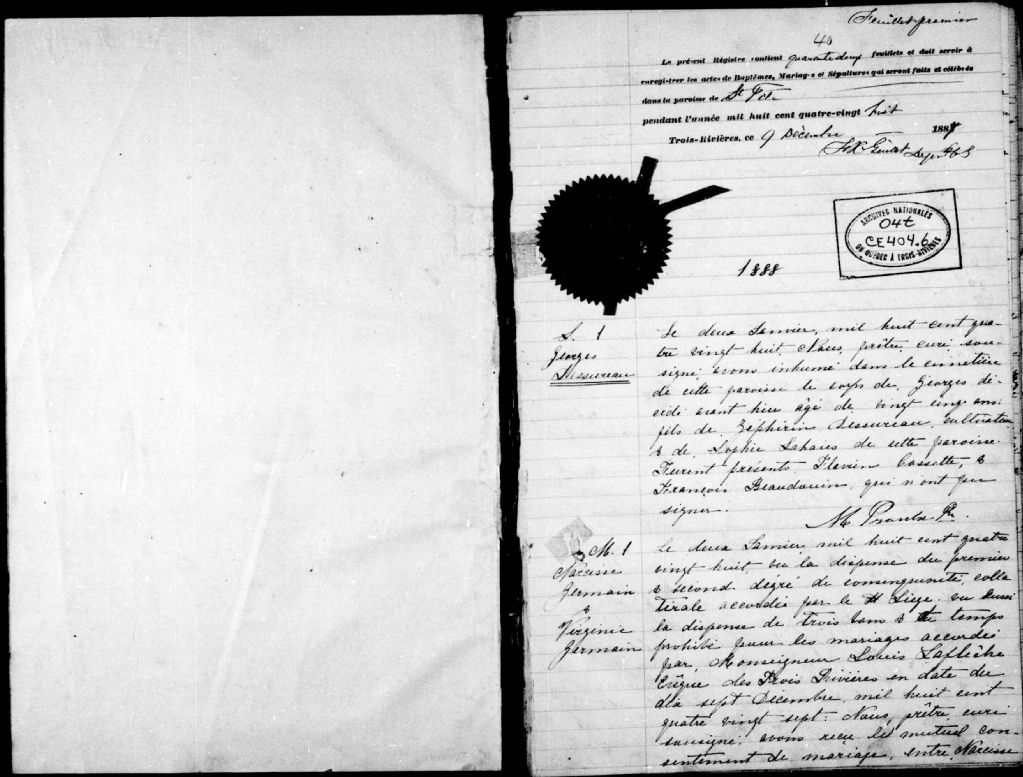 Feuillet premier
40
Le présent Régistre contient quarante deux feuillets et doit servir à
enregistrer les actes de Baptêmes, Mariages et Sépultures qui seront faits et célébrés
dans la paroisse de St
pendant l'année mil huit cent quatre-vingt huit
Trois-Rivières, ce 9 Décembre 1887
ARCHIVES NATIONALES
04t
CE404.6
DU QUÉBEC À TROIS-RIVIÈRES
1888
S. 1
Georges
Dessureau
Le deux Janvier, mil huit cent qua-
tre vingt huit, Nous, prêtre, curé sous-
signé, avons inhumé dans le cimetière
de cette paroisse le corps de Georges dé-
cédé avant hier âgé de vingt cinq ans
fils de Zéphirin Dessureau, cultivateur
& de Sophie Lahaies de cette paroisse.
Furent présents, Flavien Cossette, &
François Beaudouin, qui n'ont pu
signer.
Ptre.
M. 1
Narcisse
Germain
&
Virginie
Germain
Le deux Janvier, mil huit cent quatre
vingt huit, vu la dispense du premier
& second dégré de consanguinité colla
térale accordée par le St Siége, vu aussi
la dispense de trois bans & de temps
prohibé pour les mariages accordée
par Monseigneur Louis Laflèche
Evêque des Trois Rivières en date du
dix sept Décembre, mil huit cent
quatre vingt sept: Nous, prêtre, curé
soussigné, avons reçu le mutuel con-
sentement de mariage, entre Narcisse